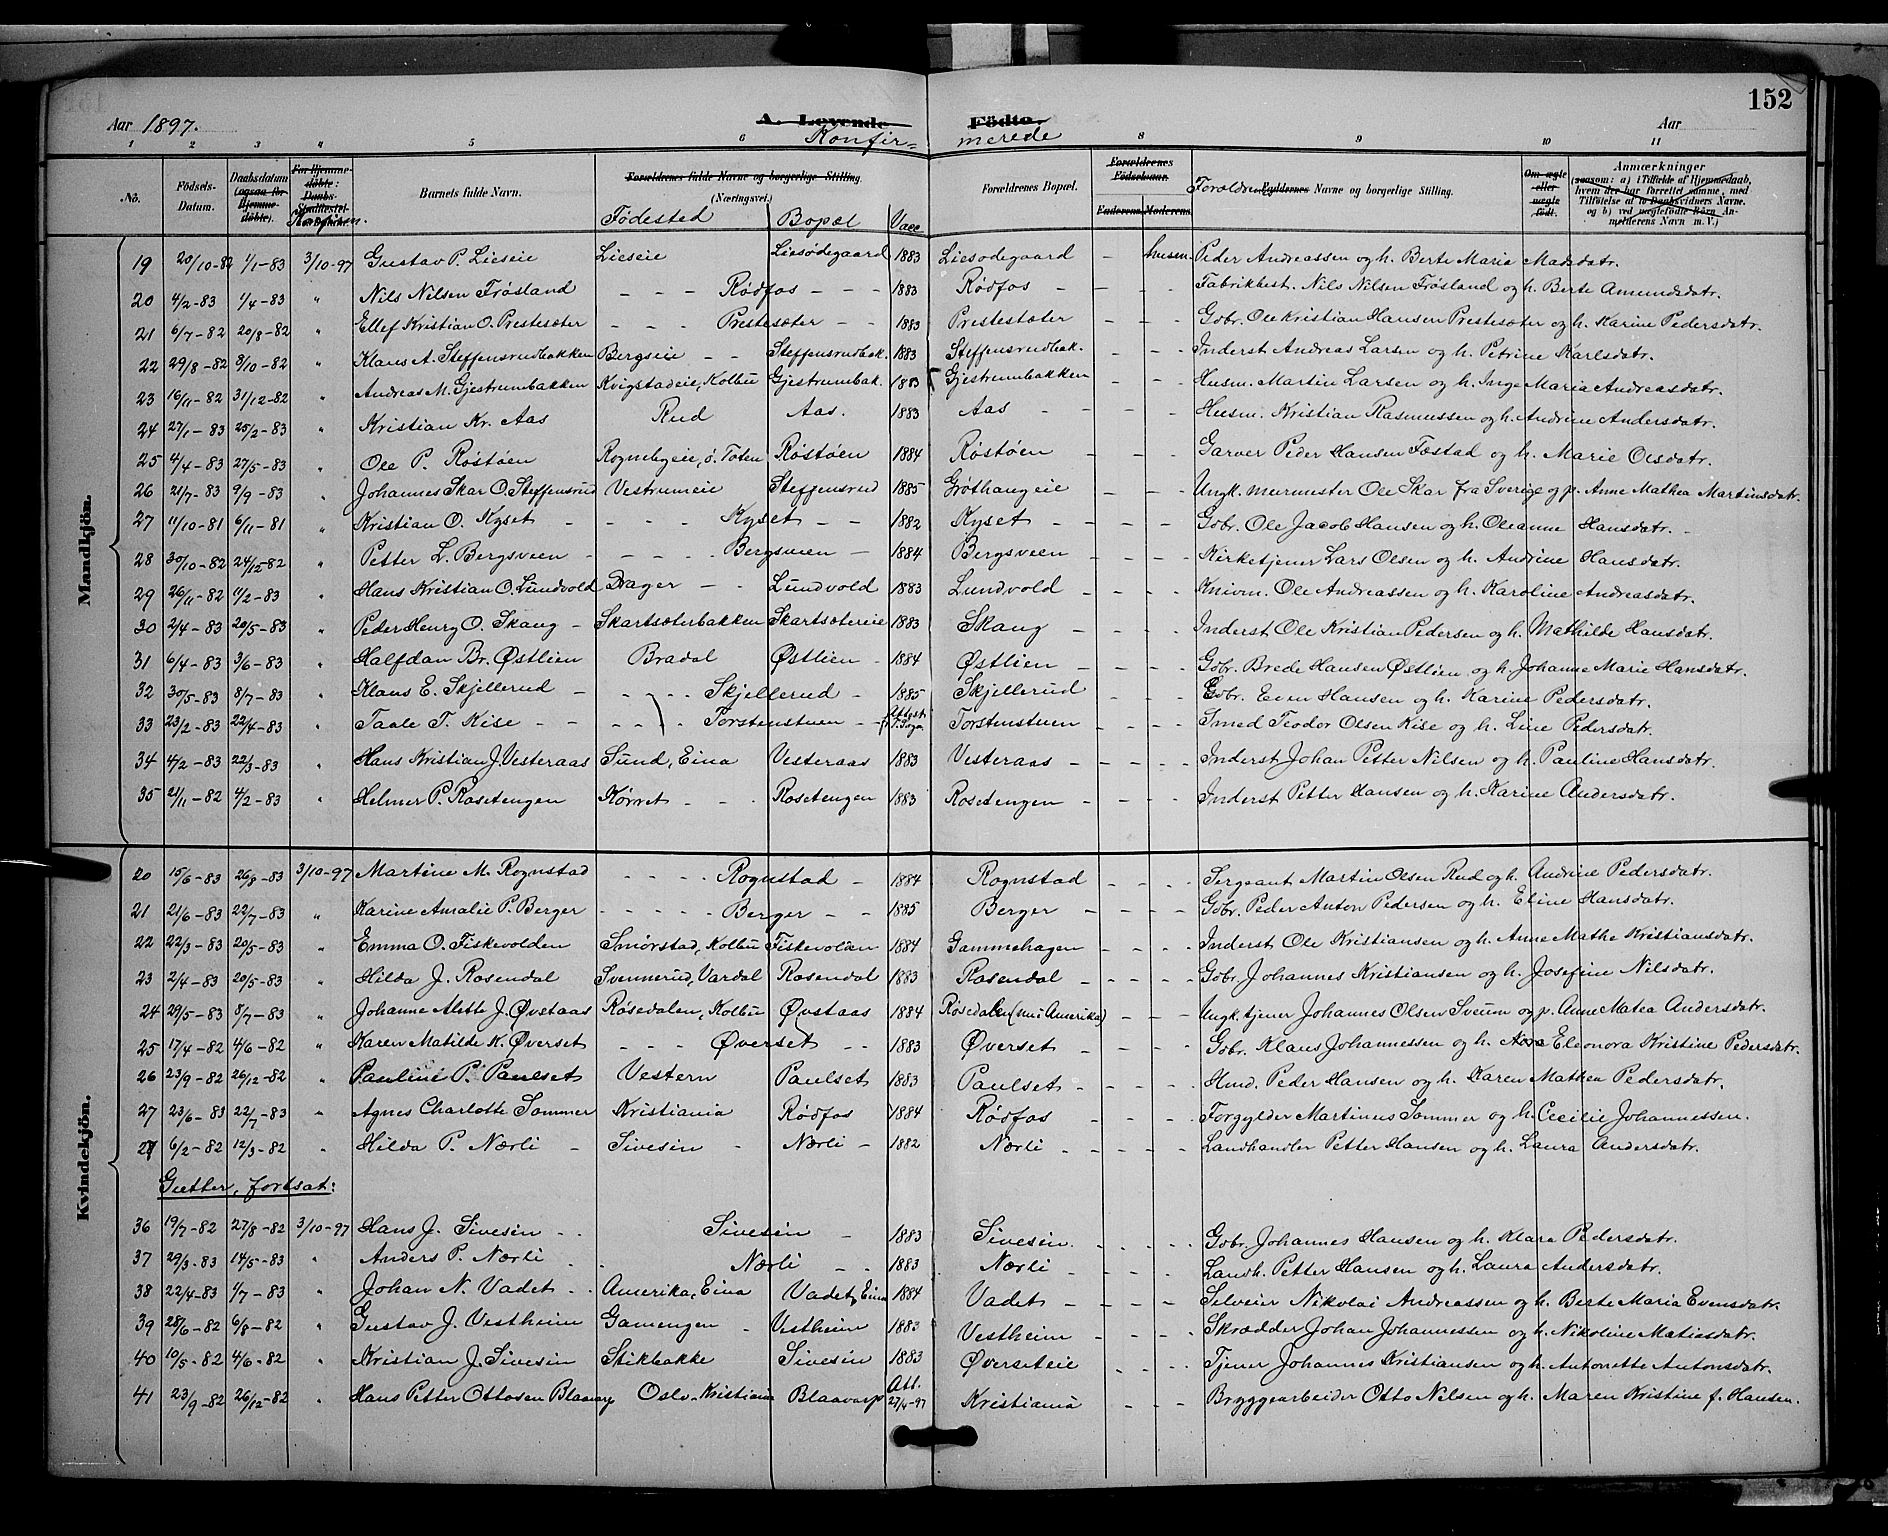 152
Aar 1897. A. Levende Födte. Aar
Konfirmerede
1 2 3 4 5 6 8 9 10 11
No. Födsels-Datum. Daabsdatum (ogsaa for Hjemmedöbte). For Hjemmedöbte: Daabs- Konfirm. Barnets fulde Navn. Forældrenes fulde Navne og borgerlige Stilling. (Næringsvei.) Födested Bopæl Vacc Forældrenes Bopæl. Forældrenes Födselsaar. Faderens. Moderens. Forældrenes Navne og borgerlige Stilling. Om ægte eller uægte födt. Anmærkninger (saasom: a) i Tilfælde af Hjemmedaab, hvem der har forrettet samme, med Tilföielse af to Daabsvidners Navne. og b) ved uægtefödte Börn Anmelderens Navn m. V.)
Mandkjön.
19 20/10-82 1/1-83 3/10-97 Gustav P. Lieseie Lieseie Liesødegaard 1883 Liesødegaard - husm. Peder Andreassen og h. Berte Maria Madsdatr.
20 4/2-83 1/4-83 " Nils Nilsen Frøsland - - - Rødfos - - - 1883 Rødfos - - - - Fabrikbest. Nils Nilsen Frøsland og h. Berte Amundsdatr.
21 6/7-82 20/8-82 " Ellef Kristian O. Prestesæter - - - Prestesæter - - 1883 Prestesæter - - - Gbr. Ole Kristian Hansen Prestesæter og h. Karine Pedersdatr.
22 29/8-82 3/10-82 " Klaus A. Steffensrudbakken Bergseie - - Steffensrudbak. 1883 Steffensrudbak. - - - Inderst Andreas Larsen og h. Petrine Karlsdatr.
23 16/11-82 31/12-82 " Andreas M. Gjestrumbakken Kvigstadeie, Kolbu Gjestrumbak. 1883 Gjestrumbakken - - - Husm. Martin Larsen og h. Inge Maria Andreasdatr.
24 27/1-83 25/2-83 " Kristian Kr. Aas Rud Aas. 1883 Aas - - - - Husm. Kristian Rasmussen og h. Andrine Andersdatr.
25 4/4-83 27/5-83 " Ole P. Røstøen Rognebyeie, Ø. Toten Røstøen 1884 Røstøen - - - Garver Peder Hansen Fæstad og h. Marie Olsdatr.
26 21/7-83 9/9-83 " Johannes Skar O. Steffensrud Vestrumeie Steffensrud 1885 Grøthaugeie - - - Ungk. murmester Ole Skar fra Sverige og p. Anne Mathea Martinsdatr.
27 11/10-81 6/11-81 " Kristian O. Kyset - - - - Kyset - - 1882 Kyset - - - - Gbr. Ole Jacob Hansen og h. Oleanne Hansdatr.
28 30/10-82 24/12-82 " Petter L. Bergsveen - - - - Bergsveen - 1884 Bergsveen - - - - Kirketjener Lars Olsen og h. Andrine Hansdatr.
29 26/11-82 11/2-83 " Hans Kristian O. Lundvold Dager - - Lundvold 1883 Lundvold - - - - Knivm. Ole Andreassen og h. Karoline Andreasdatr.
30 2/4-83 20/5-83 " Peder Henry O. Skang - Skartsæterbakken Skartsætereie 1883 Skang - - - - Inderst Ole Kristian Pedersen og h. Mathilde Hansdatr.
31 6/4-83 3/6-83 " Halfdan Br. Østlien Bradal Østlien - 1884 Østlien - - - - Gbr. Brede Hansen Østlien og h. Johanne Marie Hansdatr.
32 30/5-83 8/7-83 " Klaus E. Skjellerud - - - - - Skjellerud - 1885 Skjellerud - - - - Gbr. Even Hansen og h. Karine Pedersdatr.
33 23/2-83 22/4-83 " Taale T. Kise - - - - - Torstenstuen - - Torstenstuen - - - - Smed Teodor Olsen Kise og h. Line Pedersdatr.
34 4/2-83 22/3-83 " Hans Kristian J. Vesteraas Sund, Eina Vesteraas 1883 Vesteraas - - - - Inderst Johan Petter Nilsen og h. Pauline Hansdatr.
35 21/11-82 4/2-83 " Helmer P. Rosetengen Kørret - - - Rosetengen 1883 Rosetengen - - - - Inderst Petter Hansen og h. Karine Andersdatr.
Kvindekjön.
20 15/6-83 26/8-83 3/10-97 Martine M. Rognstad - - - - Rognstad - 1884 Rognstad - - - - Sergeant Martin Olsen Rud og h. Andrine Pedersdatr.
21 21/6-83 22/7-83 " Karine Amalie P. Berger - - - - - Berger - - 1885 Berger - - - - Gbr. Peder Anton Pedersen og h. Eline Hansdatr.
22 22/3-83 20/5-83 " Emma O. Fiskevolden Smørstad, Kolbu Fiskevolden 1884 Gammehagen - - - - Inderst Ole Kristiansen og h. Anne Mathe Kristiansdatr.
23 2/4-83 20/5-83 " Hilda J. Rosendal Svennerud, Vardal Rosendal 1883 Rosendal - - - - Gbr. Johannes Kristiansen og h. Josefine Nilsdatr.
24 29/5-83 8/7-83 " Johanne Alette J. Øvstaas Røsedalen, Kolbu Øvstaas 1884 Røsedalen (nu i Amerika) - - - Ungk. tjener Johannes Olsen Sveum og p. Anne Matea Andersdatr.
25 17/4-82 4/6-82 " Karen Matilde K. Øverset - - - Øverset - - 1883 Øverset - - - - Gbr. Klaus Johannessen og h. Nora Eleonora Kristine Pedersdatr.
26 23/9-82 26/12-82 " Pauline P. Paulset Vestern Paulset 1883 Paulset - - - - Hmd. Peder Hansen og h. Karen Mathea Pedersdatr.
27 23/6-83 22/7-83 " Agnes Charlotte Sommer Kristiania Rødfos 1884 Rødfos - - - - Forgylder Martinus Sommer og h. Cecilie Johannessen.
28 6/2-82 12/3-82 " Hilda P. Nærli - Sivesin - Nærli - 1882 Nærli - - - - Landhandler Petter Hansen og h. Laura Andersdatr.
Gutter, fortsat:
36 19/7-82 27/8-82 3/10-97 Hans J. Sivesin - - Sivesin - 1883 Sivesin. - - - - Gbr. Johannes Hansen og h. Klara Pedersdatr.
37 29/3-83 14/5-83 " Anders P. Nærli - - Nærli - - 1883 Nærli - - - - Landh. Petter Hansen og h. Laura Andersdatr.
38 22/4-83 1/7-83 " Johan N. Vadet - - Amerika, Eina Vadet, Eina 1884 Vadet - - - - Selveier Nikolai Andreassen og h. Berte Maria Evensdatr.
39 28/6-82 6/8-82 " Gustav J. Vestheim Gamengen - Vestheim 1883 Vestheim - - - - Skrædder Johan Johannessen og h. Nikoline Matiasdatr.
40 10/5-82 4/6-82 " Kristian J. Sivesin Stikbakke Sivesin 1883 Øverseteie - - - Tjener Johannes Kristiansen og h. Antonette Antonsdatr.
41 23/9-82 26/12-82 " Hans Petter Ottosen Blaavarp Oslo-Kristiania Blaavarp Att. 27/4-97 Kristiania - - - Bryggearbeider Otto Nilsen og h. Maren Kristine f. Hansen.